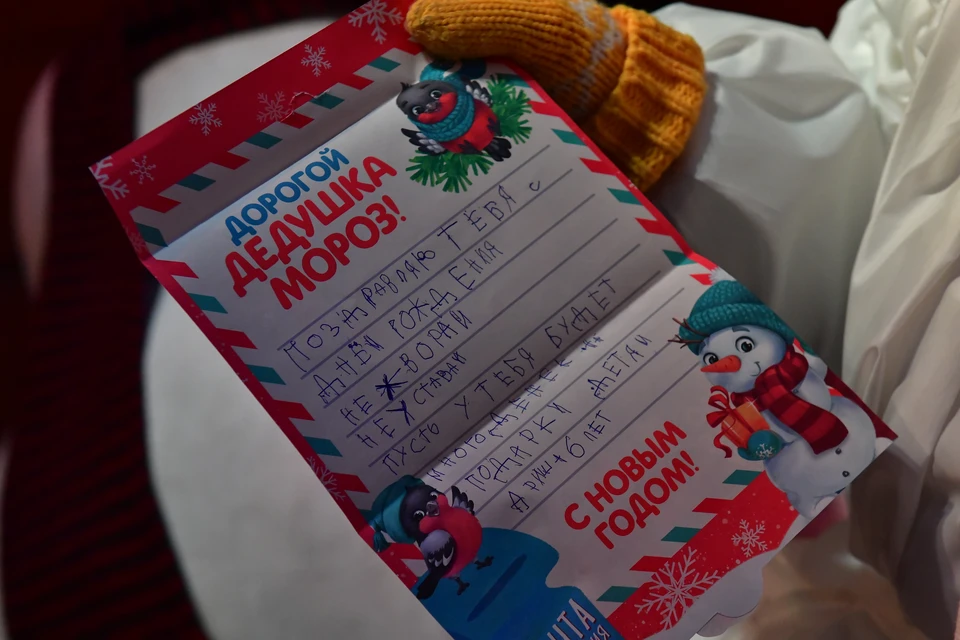 ДОРОГОЙ
ДЕДУШКА
МОРОЗ!
ПОЗДРАВЛЯЮ ТЕБЯ С
ДНЁМ РОЖДЕНИЯ
НЕ ВОРАЙ
НЕ УСТАВАЙ
ПУСТЬ У ТЕБЯ БУДЕТ
МНОГО ДЕНЕК
ПОДАРКИ ДЕТАЙ
6 ЛЕТ
С НОВЫМ
ГОДОМ!